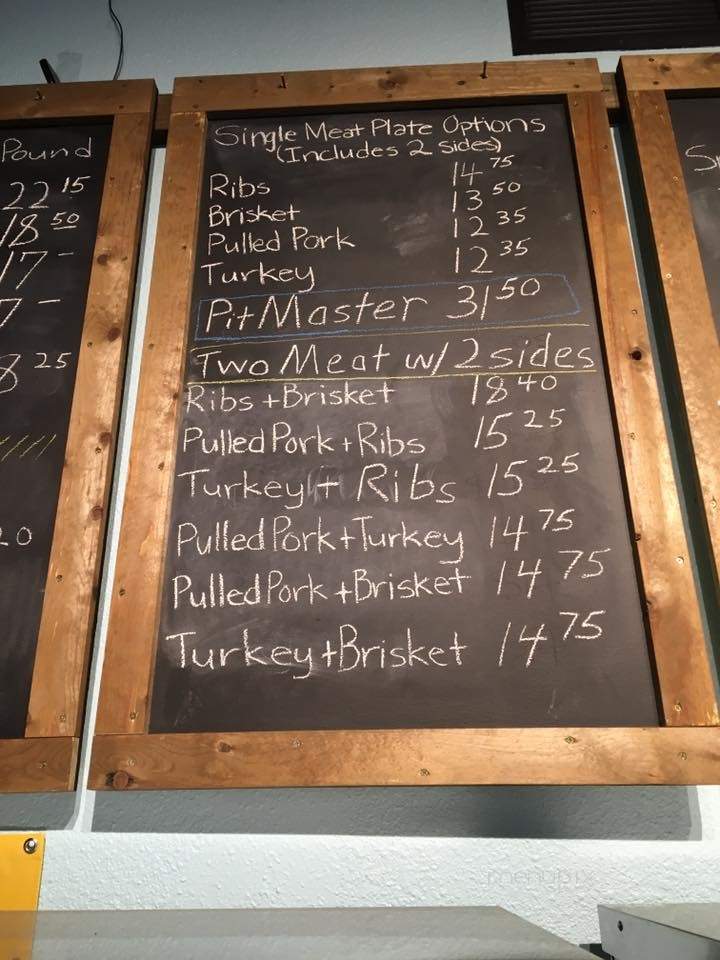 Pound
22 15
18 50
17 -
7 -
8 25
20
Single Meat Plate Options
(Includes 2 sides)
Ribs 14 75
Brisket 13 50
Pulled Pork 12 35
Turkey 12 35
PitMaster 31 50
Two Meat w/ 2 sides
Ribs + Brisket 18 40
Pulled Pork + Ribs 15 25
Turkey + Ribs 15 25
Pulled Pork + Turkey 14 75
Pulled Pork + Brisket 14 75
Turkey + Brisket 14 75
menupix